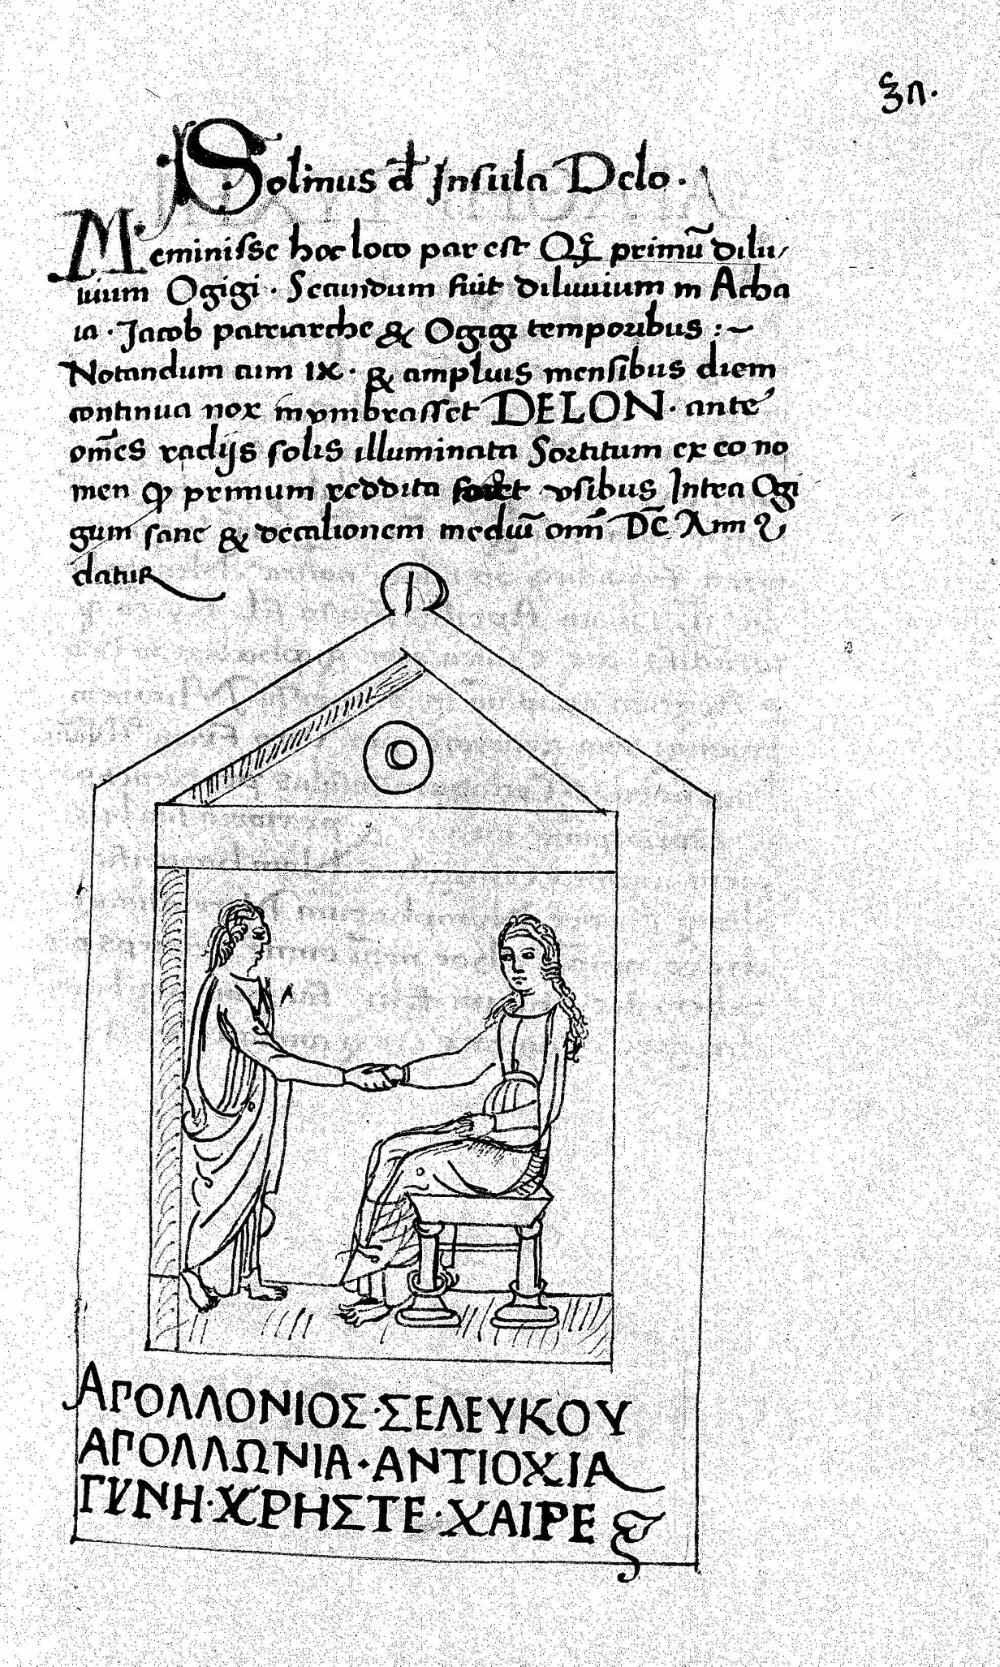 Solinus đ Insula Delo.
Meminisse hoc loco par est primū dilu/
uium Ogigi. Secundum fuit diluuium in Acha
ia. Jacob patriarche & Ogigi temporibus :~
Notandum cum IX. & amplius mensibus diem
continua nox inumbrasset DELON. ante
om̄es radijs solis illuminata Sortitum ex eo no
men primum reddita foret usibus Intra Ogi
gum sane & decalionem mediū DC Ann
datur
ΑΓΟΛΛΟΝΙΟΣ·ΣΕΛΕΥΚΟΥ
ΑΓΟΛΛΩΝΙΑ·ΑΝΤΙΟΧΙΑ
ΓΥΝΗ·ΧΡΗΣΤΕ·ΧΑΙΡΕ